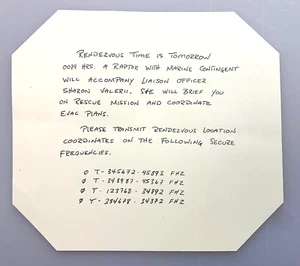 RENDERVOUS TIME IS TOMORROW
0099 HRS. A RAPTOR WITH MARINE CONTINGENT
WILL ACCOMPANY LIAISON OFFICER
SHARON VALERII. SHE WILL BRIEF YOU
ON RESCUE MISSION AND COORDINATE
EVAC PLANS.
PLEASE TRANSMIT RENDERVOUS LOCATION
COORDINATES ON THE FOLLOWING SECURE
FREQUENCIES.
Ø T-345672-45893 FHZ
Ø T-348987-45367 FHZ
Ø T-123768-34892 FHZ
Ø T-284678-34372 FHZ